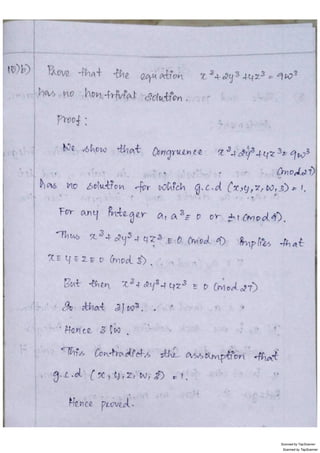 10)b) Prove that the equation x³+2y³+4z³ = 9w³
has no non-trivial solution.
Proof:
We show that congruence x³+2y³+4z³ ≡ 9w³
(mod 27)
has no solution for which g.c.d (x,y,z,w,3) = 1.
For any integer a, a³ ≡ 0 or ±1 (mod 9).
Thus x³+2y³+4z³ ≡ 0 (mod 9) implies that
x ≡ y ≡ z ≡ 0 (mod 3).
But then x³+2y³+4z³ ≡ 0 (mod 27)
So that 3|w³.
Hence 3|w.
This contradicts the assumption that
g.c.d (x,y,z,w,3) = 1.
Hence proved.
Scanned by TapScanner
Scanned by TapScanner